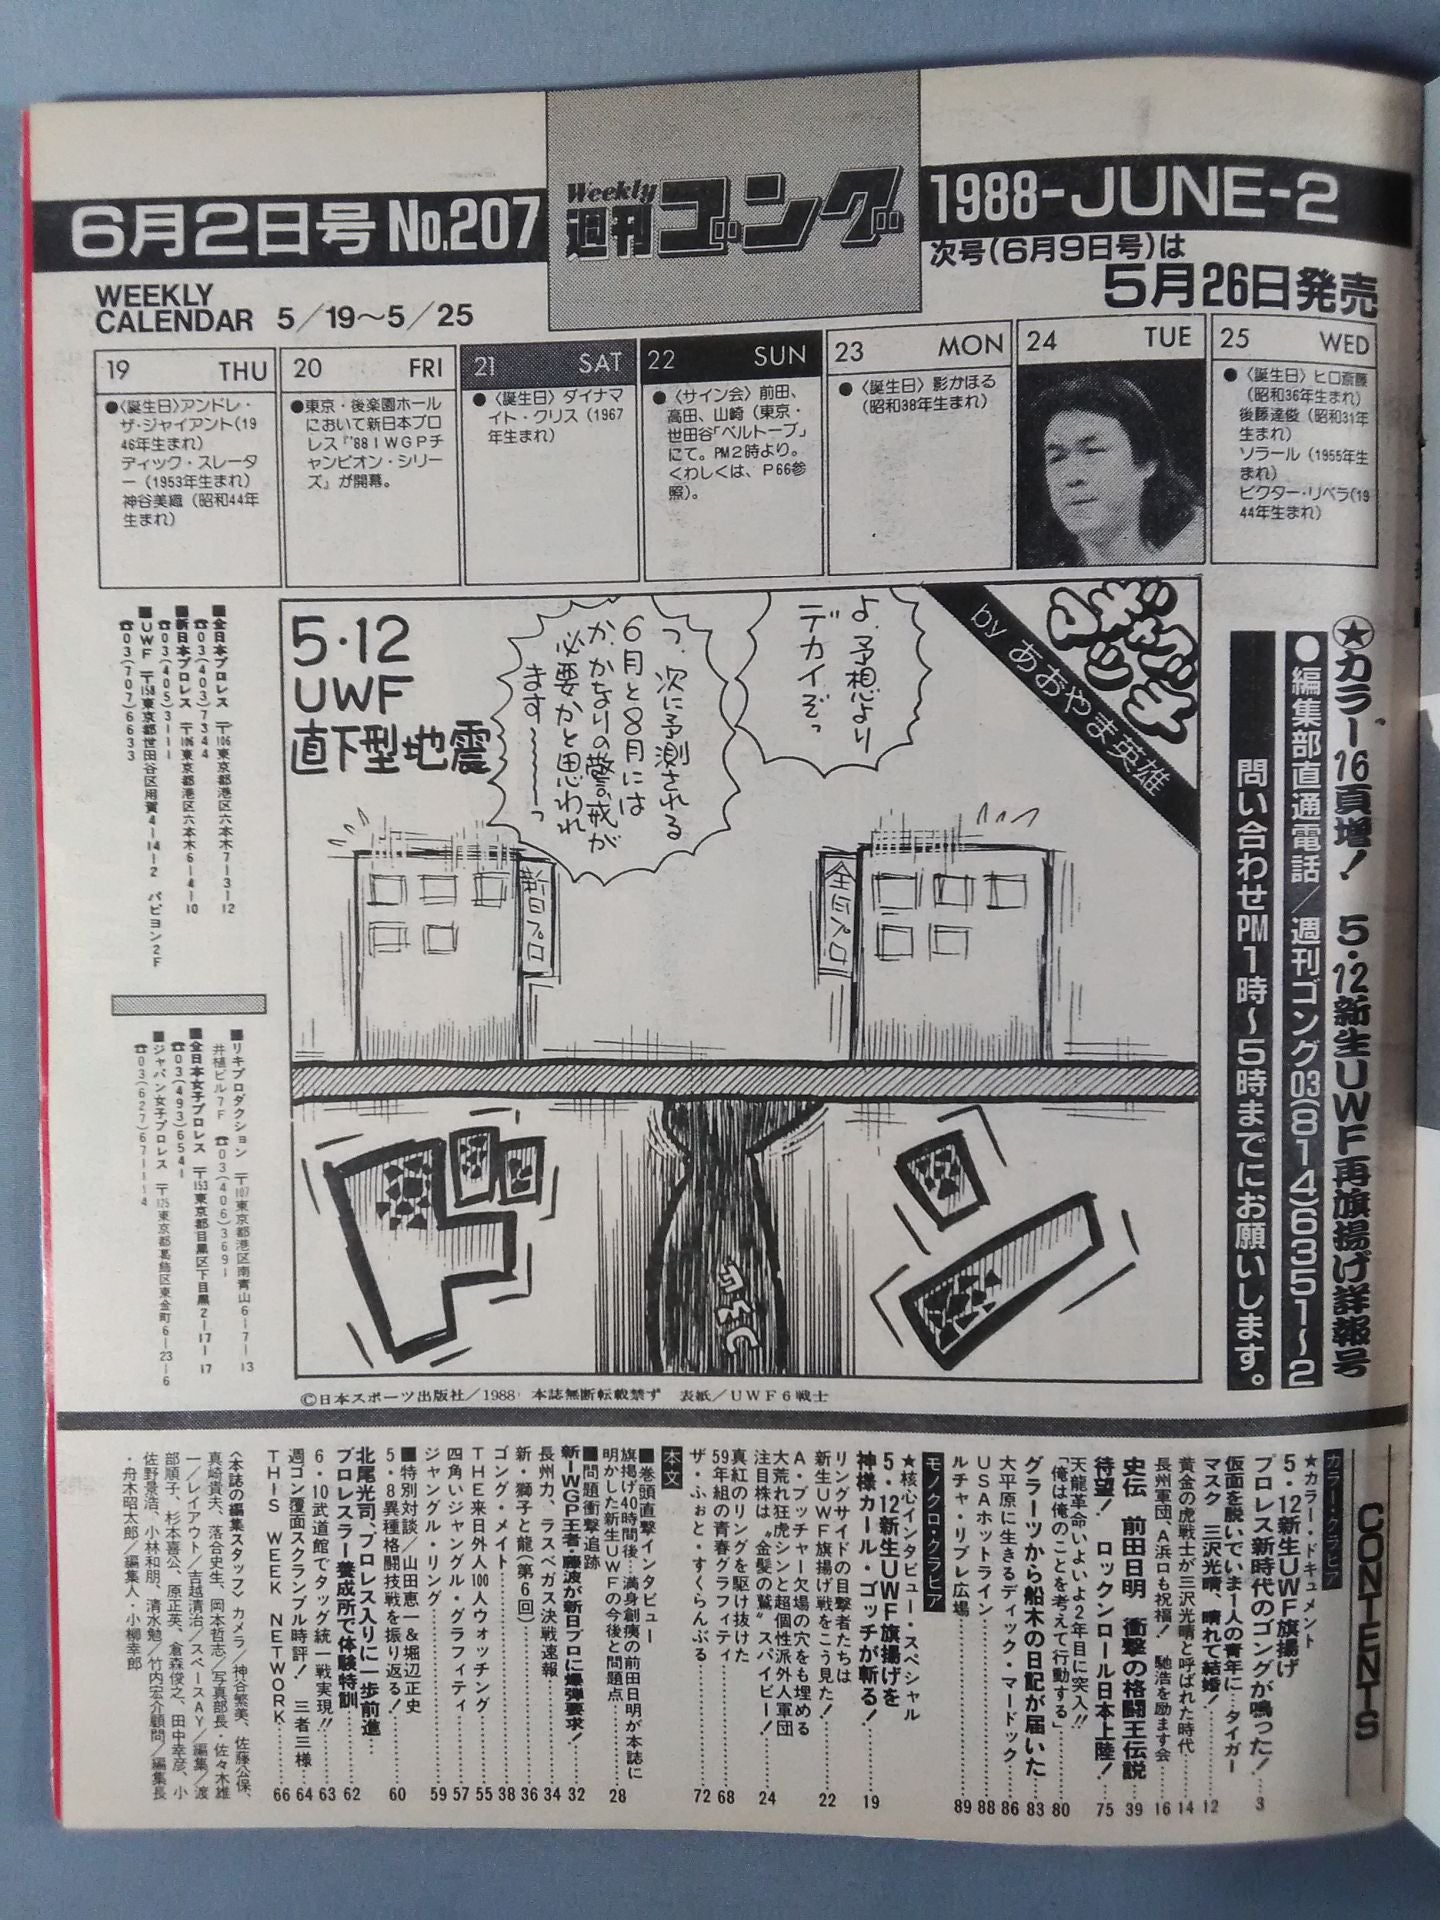 6月2日号 No.207
Weekly
週刊ゴング
1988-JUNE-2
次号(6月9日号)は
5月26日発売
WEEKLY
CALENDAR 5/19〜5/25
19 THU
●〈誕生日〉アンドレ・
ザ・ジャイアント(19
46年生まれ)
ディック・スレータ
ー(1953年生まれ)
神谷美織(昭和44年
生まれ)
20 FRI
●東京・後楽園ホール
において新日本プロ
レス『'88IWGPチ
ャンピオン・シリー
ズ』が開幕。
21 SAT
●〈誕生日〉ダイナマ
イト・クリス(1967
年生まれ)
22 SUN
●〈サイン会〉前田、
高田、山崎(東京・
世田谷「ベルトーブ」
にて。PM2時より。
くわしくは、P66参
照)。
23 MON
●〈誕生日〉影かほる
(昭和38年生まれ)
24 TUE
25 WED
●〈誕生日〉ヒロ斎藤
(昭和36年生まれ)
後藤達俊(昭和31年
生まれ)
ソラール(1955年生
まれ)
ビクター・リベラ(19
44年生まれ)
★カラー16頁増! 5・12新生UWF再旗揚げ詳報号
●編集部直通電話/週刊ゴング03(814)6351〜2
問い合わせPM1時〜5時までにお願いします。
ギャグマッチ
by あおやま英雄
よ、予想より
デカイぞっ
つ、次に予測される
6月と8月には
か、かなりの警戒が
必要かと思われ
ます〜〜〜っ
5・12
UWF
直下型地震
全日プロ
新日プロ
ゴゴゴ
■全日本プロレス 〒106東京都港区六本木7-3-12
☎03(403)7344
■新日本プロレス 〒106東京都港区六本木6-4-10
☎03(405)3111
■UWF 〒158東京都世田谷区用賀4-14-2 パピヨン2F
☎03(707)6633
■リキプロダクション 〒107東京都港区南青山6-7-13
井植ビル7F ☎03(406)3691
■全日本女子プロレス 〒153東京都目黒区下目黒2-17-17
☎03(493)6541
■ジャパン女子プロレス 〒125東京都葛飾区東金町6-23-6
☎03(627)6711~4
©日本スポーツ出版社/1988 本誌無断転載禁ず 表紙/UWF6戦士
CONTENTS
カラー・グラビア
★カラー・ドキュメント
5・12新生UWF旗揚げ
プロレス新時代のゴングが鳴った!…3
仮面を脱いでいま1人の青年に…タイガー
マスク 三沢光晴、晴れて結婚!…12
黄金の虎戦士が三沢光晴と呼ばれた時代…14
長州軍団、A浜口も祝福! 馳浩を励ます会…16
史伝 前田日明 衝撃の格闘王伝説…39
待望! ロックンロール日本上陸!…75
天龍革命いよいよ2年目に突入!!
「俺は俺のことを考えて行動する」…80
グラーツから船木の日記が届いた…83
大平原に生きるディック・マードック…86
USAホットライン…88
ルチャ・リブレ広場…89
モノクロ・グラビア
★核心インタビュー・スペシャル
5・12新生UWF旗揚げを
神様カール・ゴッチが斬る!…19
リングサイドの目撃者たちは
新生UWF旗揚げ戦をこう見た!…22
A・ブッチャー欠場の穴をも埋める
大荒れ狂虎シンと超個性派外人軍団
注目株は“金髪の鷲”スパイビー!…24
真紅のリングを駆け抜けた
59年組の青春グラフィティ…68
ザ・ふぉと・すくらんぶる…72
本文
■巻頭直撃インタビュー
旗揚げ40時間後…満身創痍の前田日明が本誌に
明かした新生UWFの今後と問題点…28
■問題衝撃追跡
新・IWGP王者・藤波が新日プロに爆弾要求!…32
長州力、ラスベガス決戦速報…34
新・獅子と龍(第6回)…36
ゴング・メイト…38
THE来日外人100人ウォッチング…55
四角いジャングル・グラフィティ…57
ジャングル・リング…59
■特別対談/山田恵一&堀辺正史
5・8異種格闘技戦を振り返る!…60
北尾光司、プロレス入りに一歩前進…
プロレスラー養成所で体験特訓…62
6・10武道館でタッグ統一戦実現!!…63
週ゴン覆面スクランブル時評! 三者三様…64
THIS WEEK NETWORK…66
〈本誌の編集スタッフ〉カメラ/神谷繁美、佐藤公保、
真崎貴夫、落合史生、岡本哲志/写真部長 佐々木雄
一/レイアウト/吉越清治/スペースAY/編集/渡
部順子、杉本喜公、原正英、倉森俊之、田中幸彦、小
佐野景浩、小林和朋、清水勉/竹内宏介顧問/編集長
・舟木昭太郎/編集人・小柳幸郎